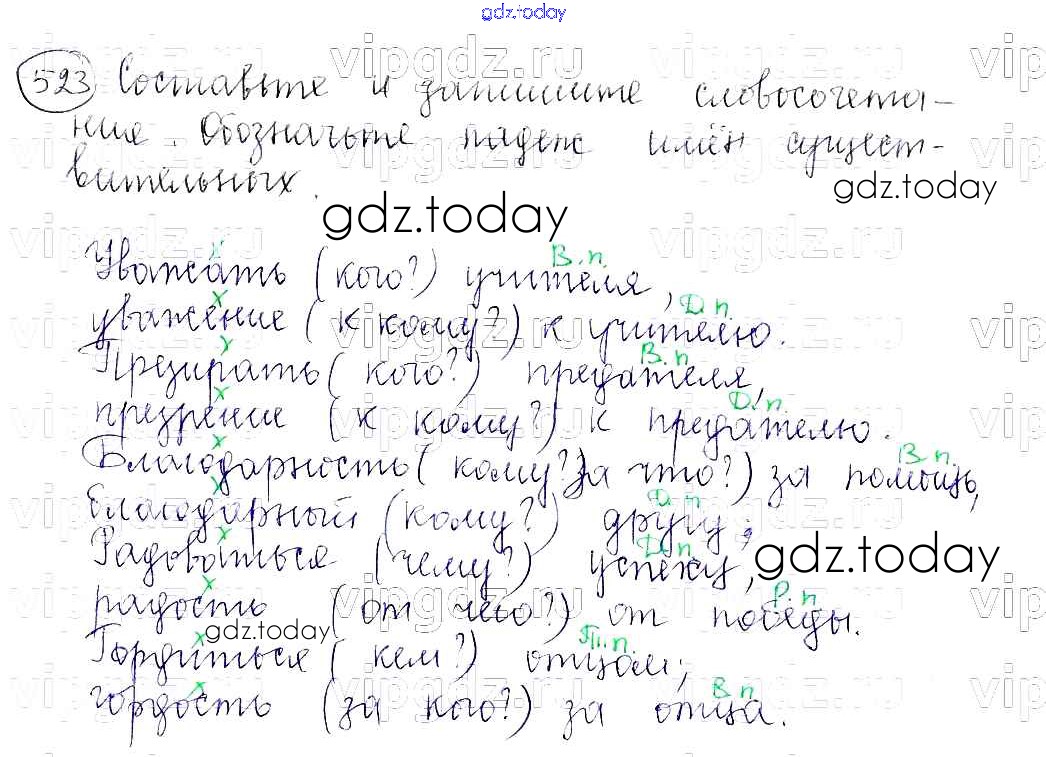 gdz.today
523 Составьте и запишите словосочета-
ние. Обозначьте падеж имён сущест-
вительных.
gdz.today
gdz.today
Уважать (кого?) учителя, В.п.
уважение (к кому?) к учителю. Д.п.
Презирать (кого?) предателя, В.п.
презрение (к кому?) к предателю. Д.п.
Благодарность (кому? за что?) за помощь, В.п.
благодарный (кому?) другу; Д.п.
Радоваться (чему?) успеху, Д.п.
gdz.today
радость (от чего?) от победы. Р.п.
gdz.today
Гордиться (кем?) отцом; Тв.п.
гордость (за кого?) за отца. В.п.
vipgdz.ru